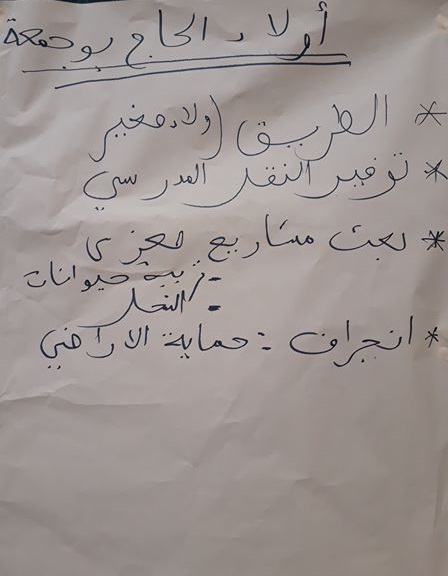 أولاد الحاج بوجمعة
* الطريق (ولاد مغير
* توفير النقل المدرسي
* بعث مشاريع صغرى
- تربية حيوانات
- النحل
* انجراف : حماية الاراضي